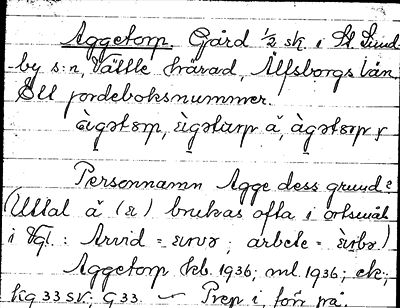 Aggetorp. Gård 1/2 sk i St Lund-
by s:n, Vättle härad, Älfsborgs län.
Ett jordeboksnummer.
ὲigətɛrp, ὲigətarp ă, àgətɛrp
Personnamn Agge dess grund?
(Uttal ă (ɛ) brukas ofta i ortsmål
i Vgl.: Arvid = ɛrvə; arbete = ὲrbə)
Aggetorp kb. 1936; ml. 1936; ek;
hg 33 sv; G 33. – Prep i, fön på.